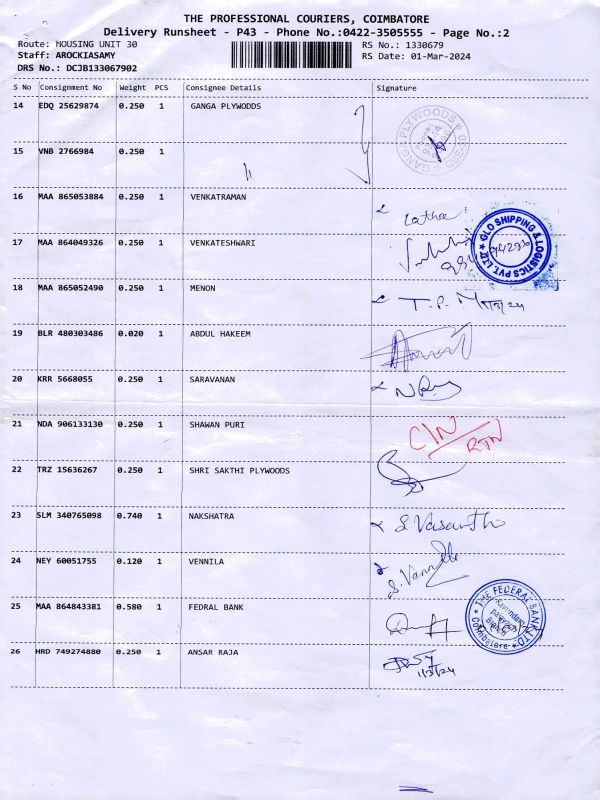 THE PROFESSIONAL COURIERS, COIMBATORE
Delivery Runsheet - P43 - Phone No.:0422-3505555 - Page No.:2
Route: HOUSING UNIT 30 RS No.: 1330679
Staff: AROCKIASAMY RS Date: 01-Mar-2024
DRS No.: DCJB133067902
S No Consignment No Weight PCS Consignee Details Signature
14 EDQ 25629874 0.250 1 GANGA PLYWODDS
GANGA PLYWOODS
15 VNB 2766984 0.250 1
16 MAA 865053884 0.250 1 VENKATRAMAN
Latha
GLO SHIPPING & LOGISTICS PVT LTD
17 MAA 864049326 0.250 1 VENKATESHWARI
18 MAA 865052490 0.250 1 MENON
T.P. M 1/3/24
19 BLR 480303486 0.020 1 ABDUL HAKEEM
20 KRR 5668055 0.250 1 SARAVANAN
21 NDA 906133130 0.250 1 SHAWAN PURI
C/N
RTN
22 TRZ 15636267 0.250 1 SHRI SAKTHI PLYWOODS
23 SLM 340765098 0.740 1 NAKSHATRA
S. Vasantha
24 NEY 60051755 0.120 1 VENNILA
S. Vennila
25 MAA 864843381 0.580 1 FEDRAL BANK
THE FEDERAL BANK LTD
Coimbatore
26 HRD 749274880 0.250 1 ANSAR RAJA
1/3/24